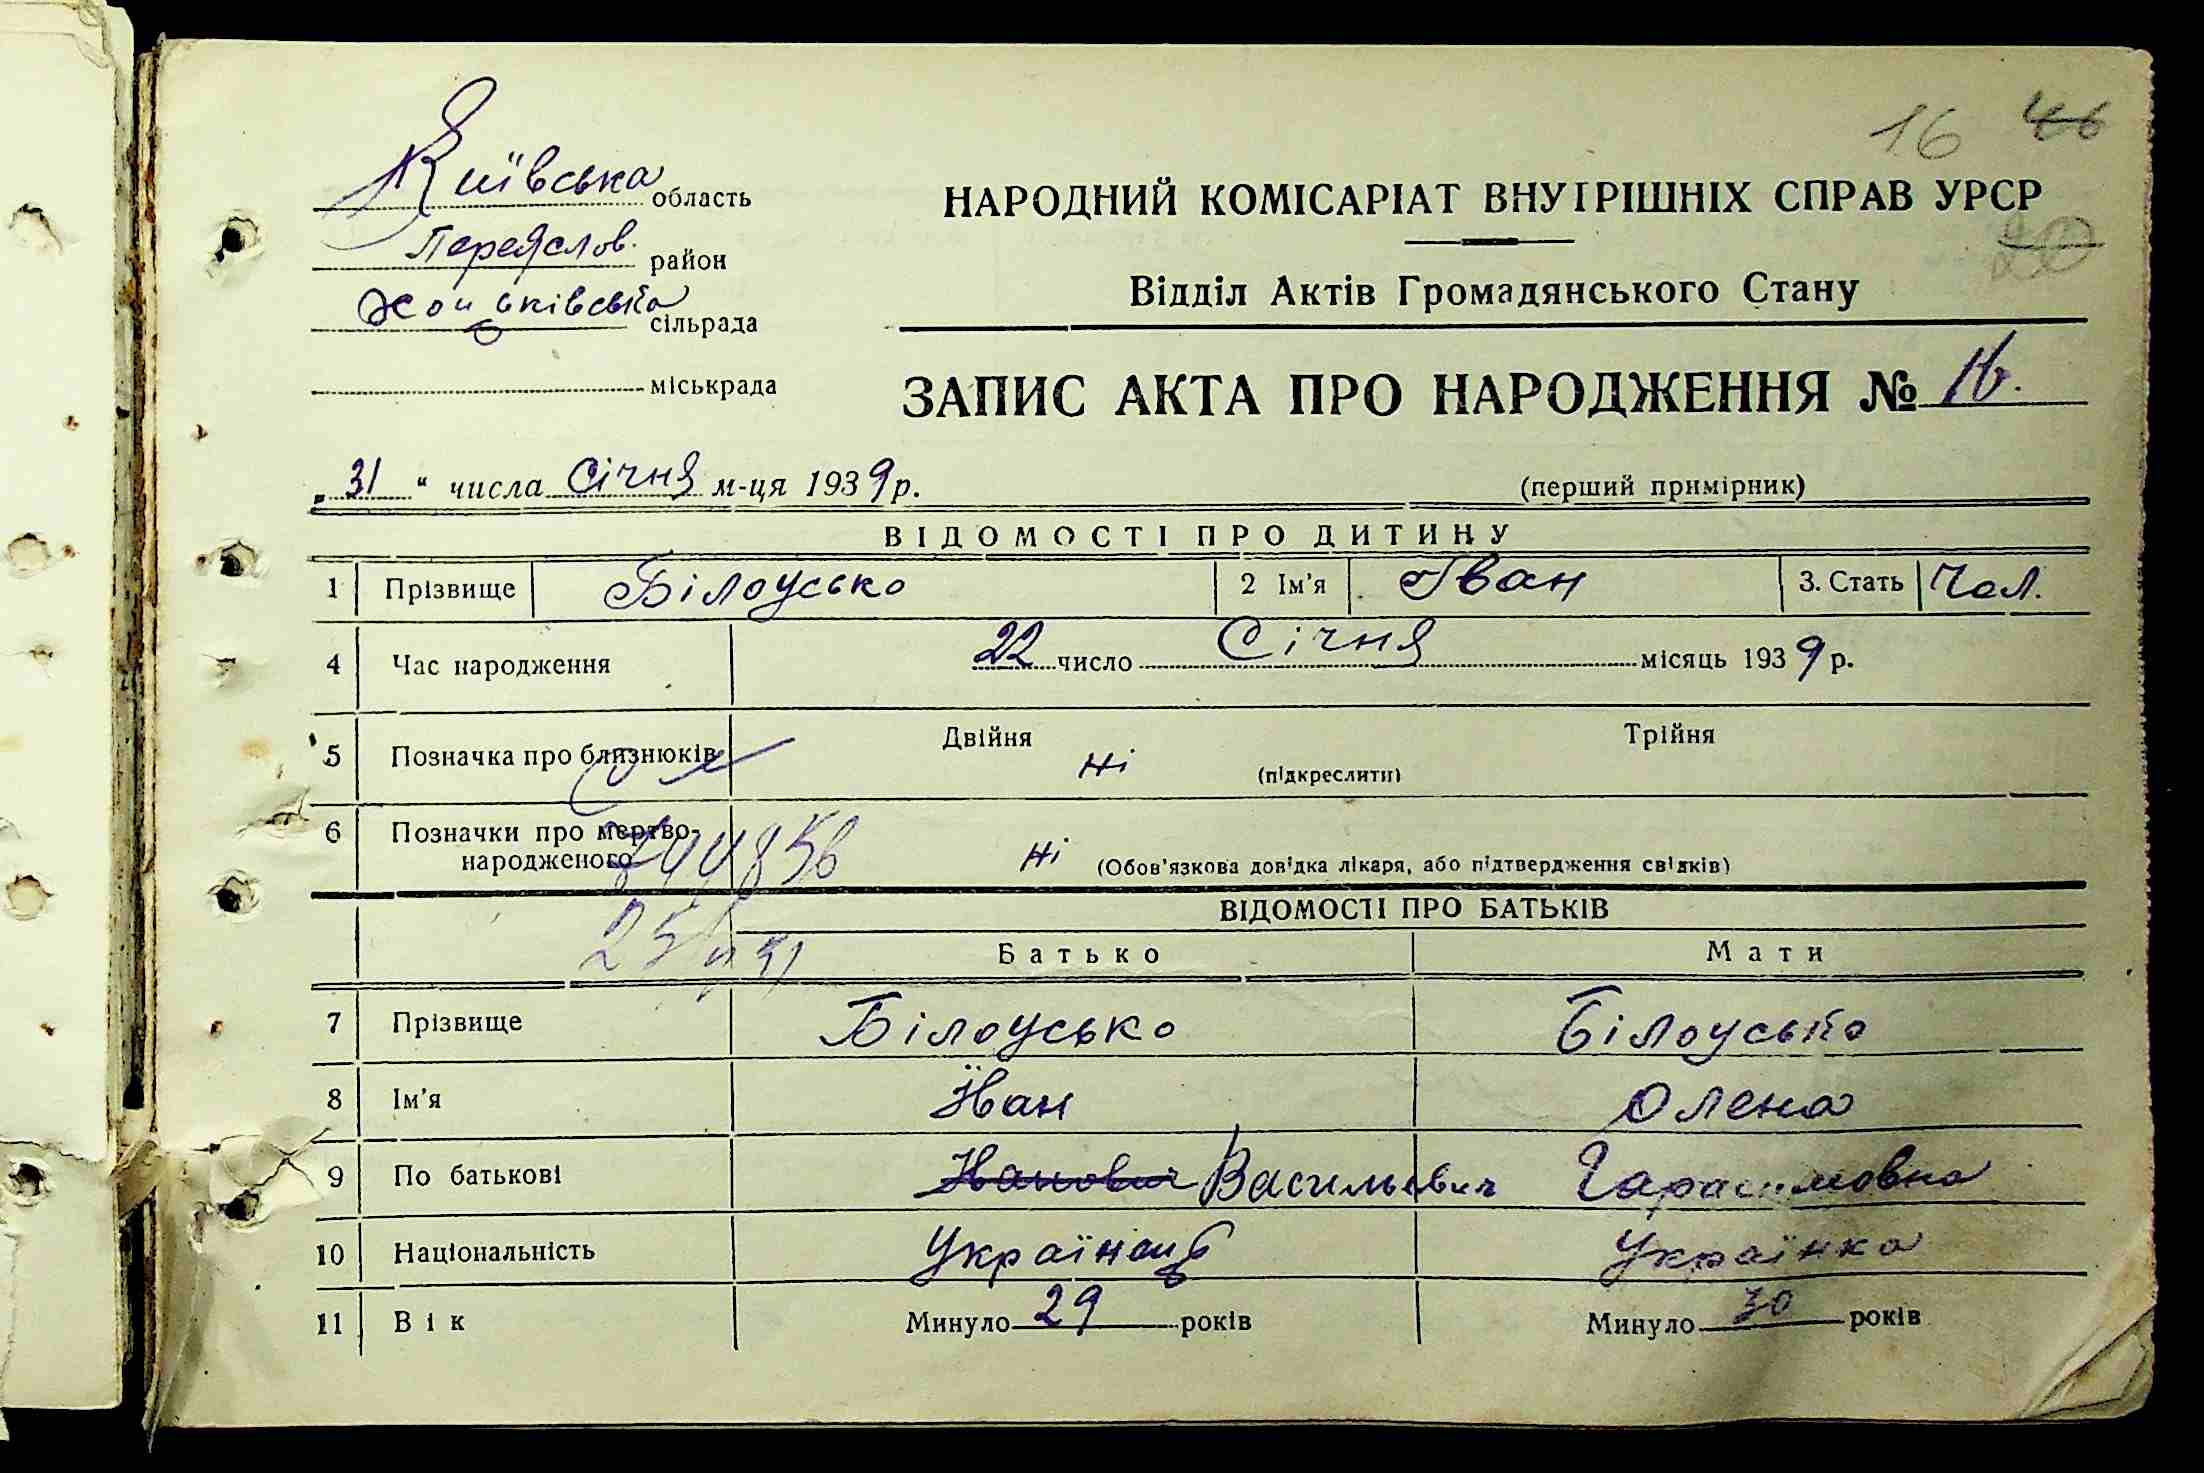 16 46
Київська область
НАРОДНИЙ КОМІСАРІАТ ВНУТРІШНІХ СПРАВ УРСР
20
Переяслов. район
Відділ Актів Громадянського Стану
Хоцьківська сільрада
міськрада
ЗАПИС АКТА ПРО НАРОДЖЕННЯ № 16.
„31“ числа Січня м-ця 1939 р.
(перший примірник)
ВІДОМОСТІ ПРО ДИТИНУ
1 Прізвище Білоусько 2 Ім'я Іван 3. Стать Чол.
4 Час народження 22 число Січня місяць 1939 р.
5 Позначка про близнюків Двійня ні (підкреслити) Трійня
6 Позначки про мертво-
народженого ні (Обов'язкова довідка лікаря, або підтвердження свідків)
ВІДОМОСТІ ПРО БАТЬКІВ
Батько Мати
7 Прізвище Білоусько Білоусько
8 Ім'я Іван Олена
9 По батькові Іванович Васильевич Гарасимовна
10 Національність Українець Українка
11 Вік Минуло 29 років Минуло 30 років